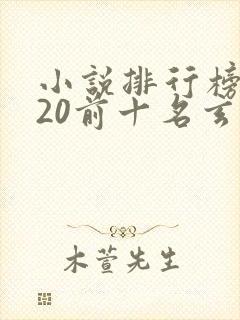 小説排行榜
20前十名玄
木萱先生